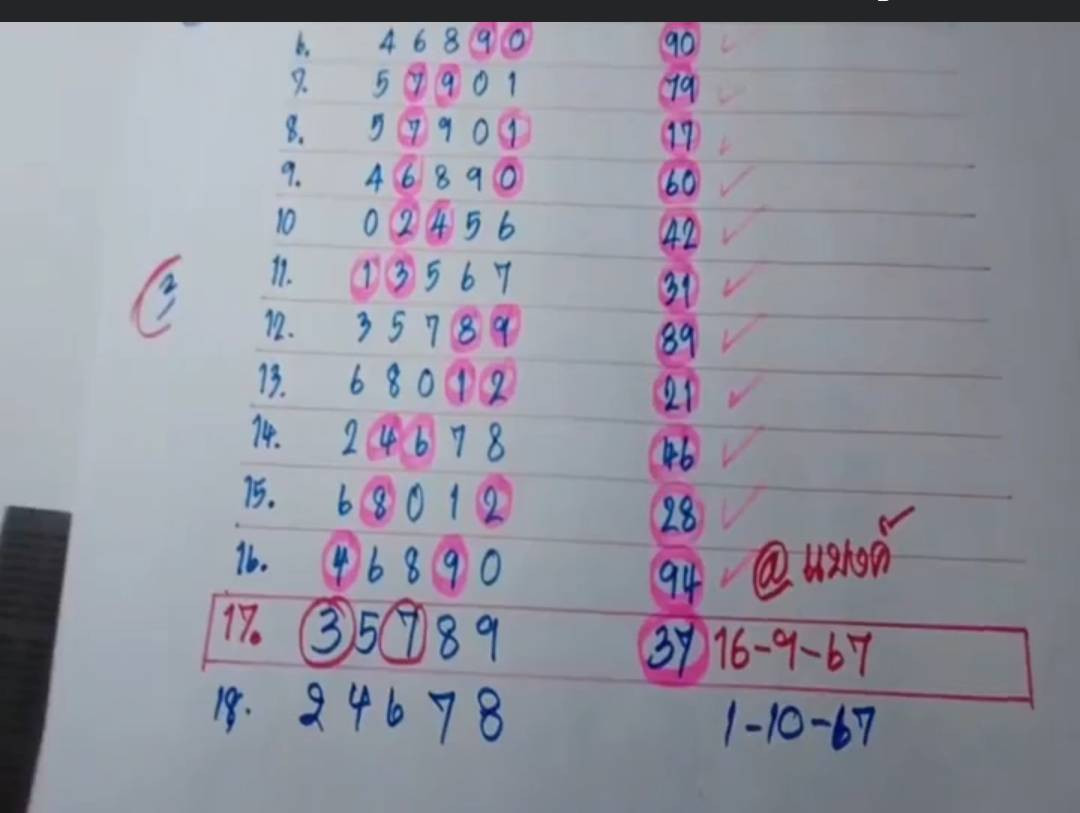 6. 4 6 8 9 0 90
7. 5 7 9 0 1 79
8. 5 7 9 0 1 17
9. 4 6 8 9 0 60
10 0 2 4 5 6 42
11. 1 3 5 6 7 31
3
12. 3 5 7 8 9 89
13. 6 8 0 1 2 21
14. 2 4 6 7 8 46
15. 6 8 0 1 2 28
16. 4 6 8 9 0 94 @
17. 3 5 7 8 9 37 16-9-67
18. 2 4 6 7 8 1-10-67